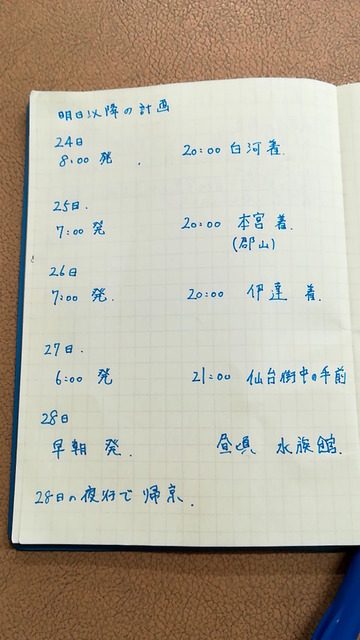 明日以降の計画
24日
8:00 発 20:00 白河着.
25日.
7:00 発 20:00 本宮着.
(郡山)
26日
7:00 発. 20:00 伊達 着.
27日.
6:00 発 21:00 仙台街中の手前
28日
早朝 発. 昼頃 水族館.
28日の夜行で帰京.